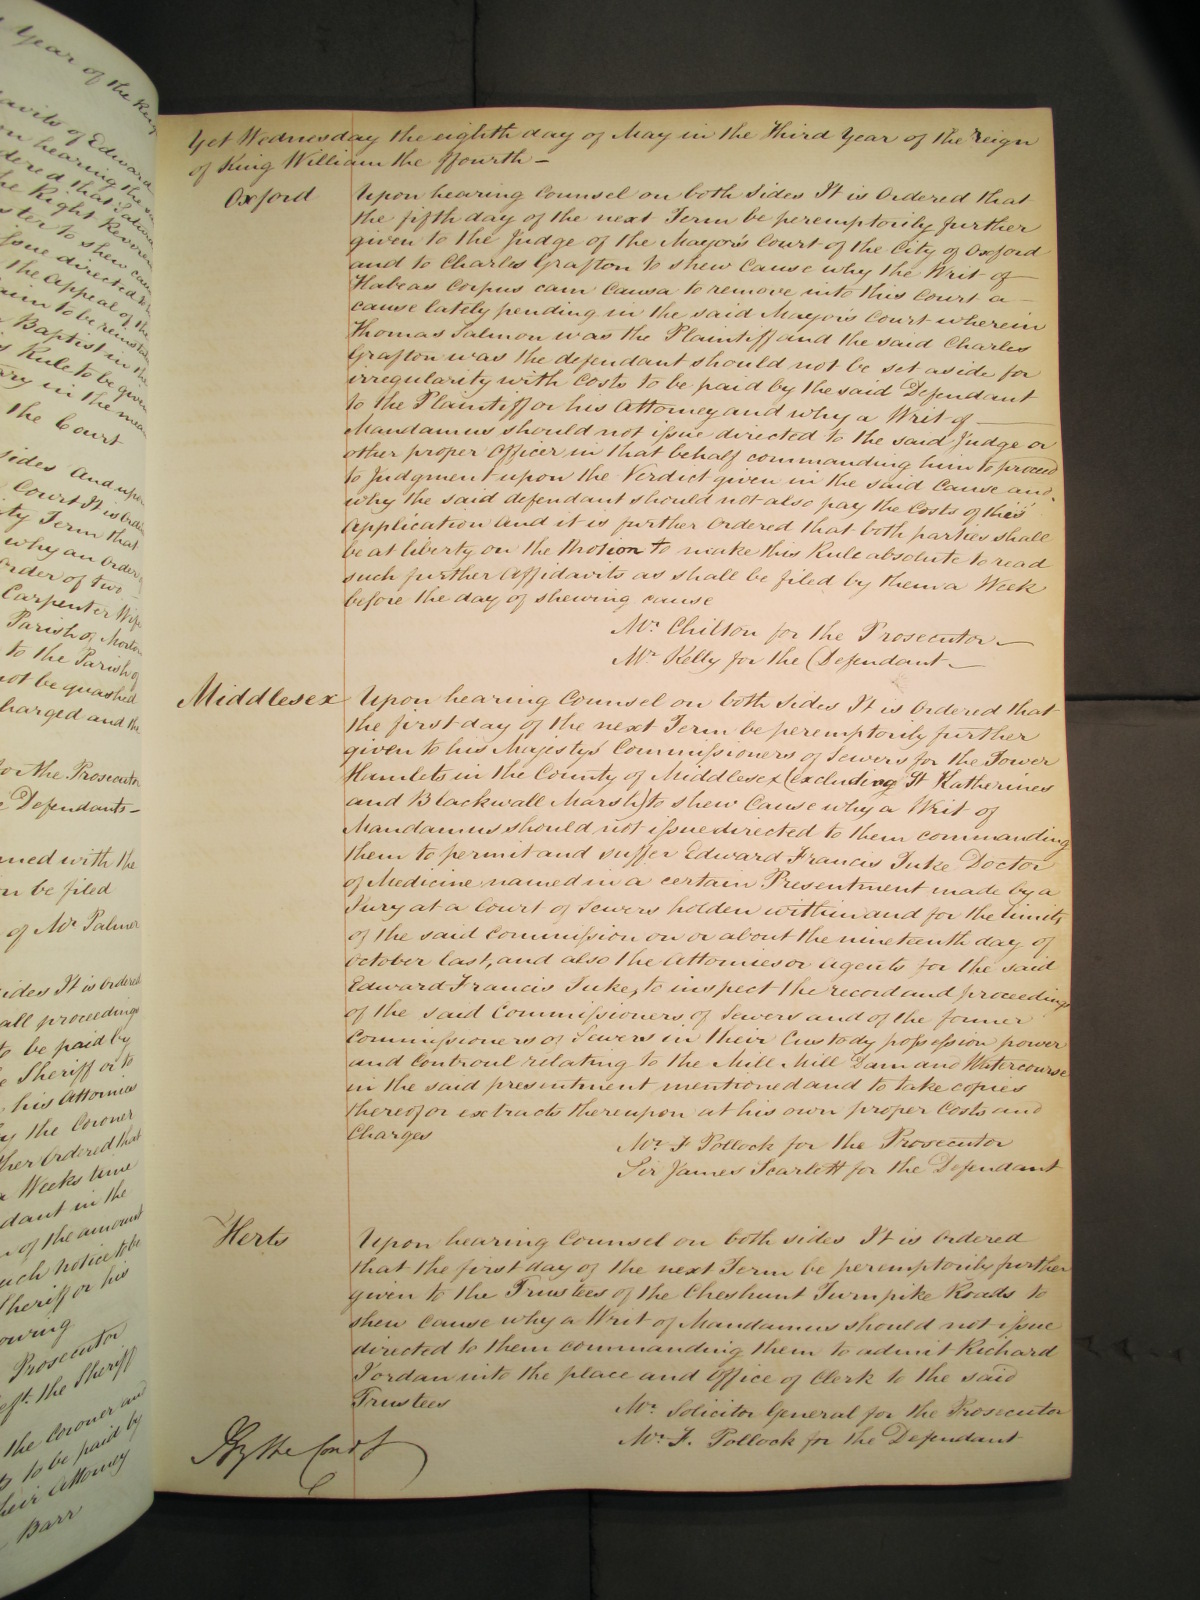 Year of the King
davits of Edward
on hearing the
dered that
the Right Reverend
ster to shew cause
issue directed
the Appeal of the
aim to be
Baptist in the
s Rule to be given
ary in the mean
the Court
sides And upon
Court It is
ty Term that
why an Order
Order of two
Carpenter Wife
Parish of Morton
to the Parish of
not be quashed
charged and the
for the Prosecutor
e Defendants
ned with the
n be filed
of Mr Palmer
sides It is Ordered
all proceedings
to be paid by
e Sheriff or to
his Attornies
by the Coroner
ther Ordered that
a Weeks time
dant in the
of the amount
such notice to be
Sheriff or his
owing
Prosecutor
the Sheriff
the Coroner and
to be paid by
their Attorney
Barr
Yet Wednesday the eighth day of May in the Third Year of the reign
of King William the ffourth
Oxford Upon hearing Counsel on both Sides It is Ordered that
the fifth day of the next Term be peremptorily further
given to the Judge of the Mayor's Court of the City of Oxford
and to Charles Grafton to shew Cause why the Writ of
Habeas Corpus cum Causa to remove into this Court a
cause lately pending in the said Mayors Court wherein
Thomas Salmon was the Plaintiff and the said Charles
Grafton was the defendant should not be set aside for
irregularity with Costs to be paid by the said Defendant
to the Plaintiff or his Attorney and why a Writ of
Mandamus should not issue directed to the said Judge or
other proper Officer in that behalf commanding him to proceed
to Judgment upon the Verdict given in the said Cause and
why the said defendant should not also pay the Costs of this
Application And it is further Ordered that both parties shall
be at liberty on the Motion to make this Rule absolute to read
such further Affidavits as shall be filed by them a Week
before the day of shewing cause
Mr. Chilton for the Prosecutor
Mr Kelly for the Defendant
Middlesex Upon hearing Counsel on both Sides It is Ordered that
the first day of the next Term be peremptorily further
given to his Majesty's Commissioners of Sewers for the Tower
Hamlets in the County of Middlesex (excluding St Katherines
and Blackwall Marsh) to shew Cause why a Writ of
Mandamus should not issue directed to them commanding
them to permit and suffer Edward Francis Tuke Doctor
of Medicine named in a certain Presentment made by a
Jury at a Court of Sewers holden within and for the limits
of the said Commission on or about the nineteenth day of
October last, and also the Attornies or Agents for the said
Edward Francis Tuke, to inspect the record and proceedings
of the said Commissioners of Sewers and of the former
Commissioners of Sewers in their Custody possession power
and Controul relating to the Mill Mill Dam and Watercourse
in the said presentment mentioned and to take copies
thereof or extracts thereupon at his own proper Costs and
Charges
Mr. F Pollock for the Prosecutor
Sir James Scarlett for the Defendant
Herts Upon hearing Counsel on both sides It is Ordered
that the first day of the next Term be peremptorily further
given to the Trustees of the Cheshunt Turnpike Roads to
shew cause why a Writ of Mandamus should not issue
directed to them commanding them to admit Richard
Jordan into the place and Office of Clerk to the said
Trustees
Mr. Solicitor General for the Prosecutor
Mr. F. Pollock for the Defendant
By the Court